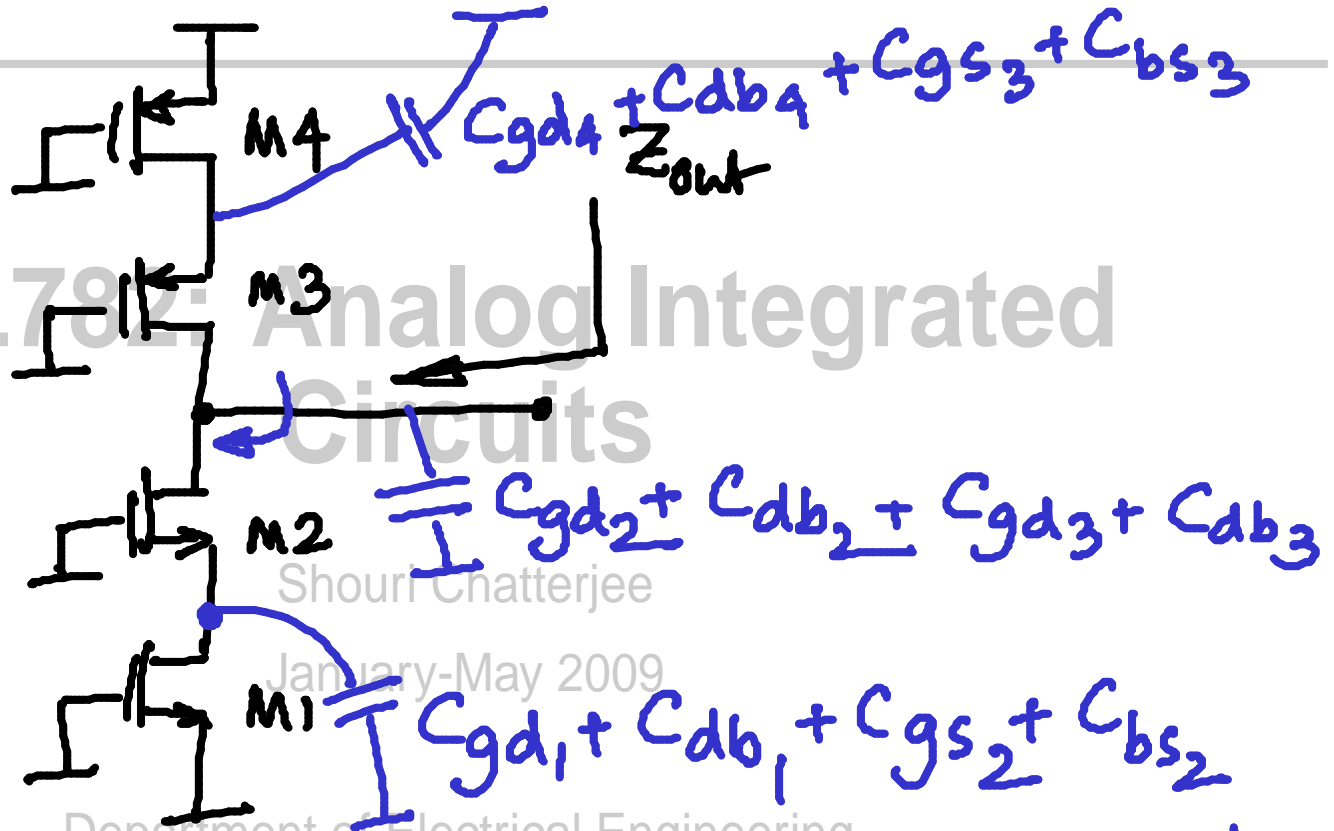 Cgd4 + Cdb4 + Cgs3 + Cbs3
M4
Zout
M3
.782: Analog Integrated
Circuits
M2
Cgd2 + Cdb2 + Cgd3 + Cdb3
Shouri Chatterjee
January-May 2009
M1
Cgd1 + Cdb1 + Cgs2 + Cbs2
Department of Electrical Engineering